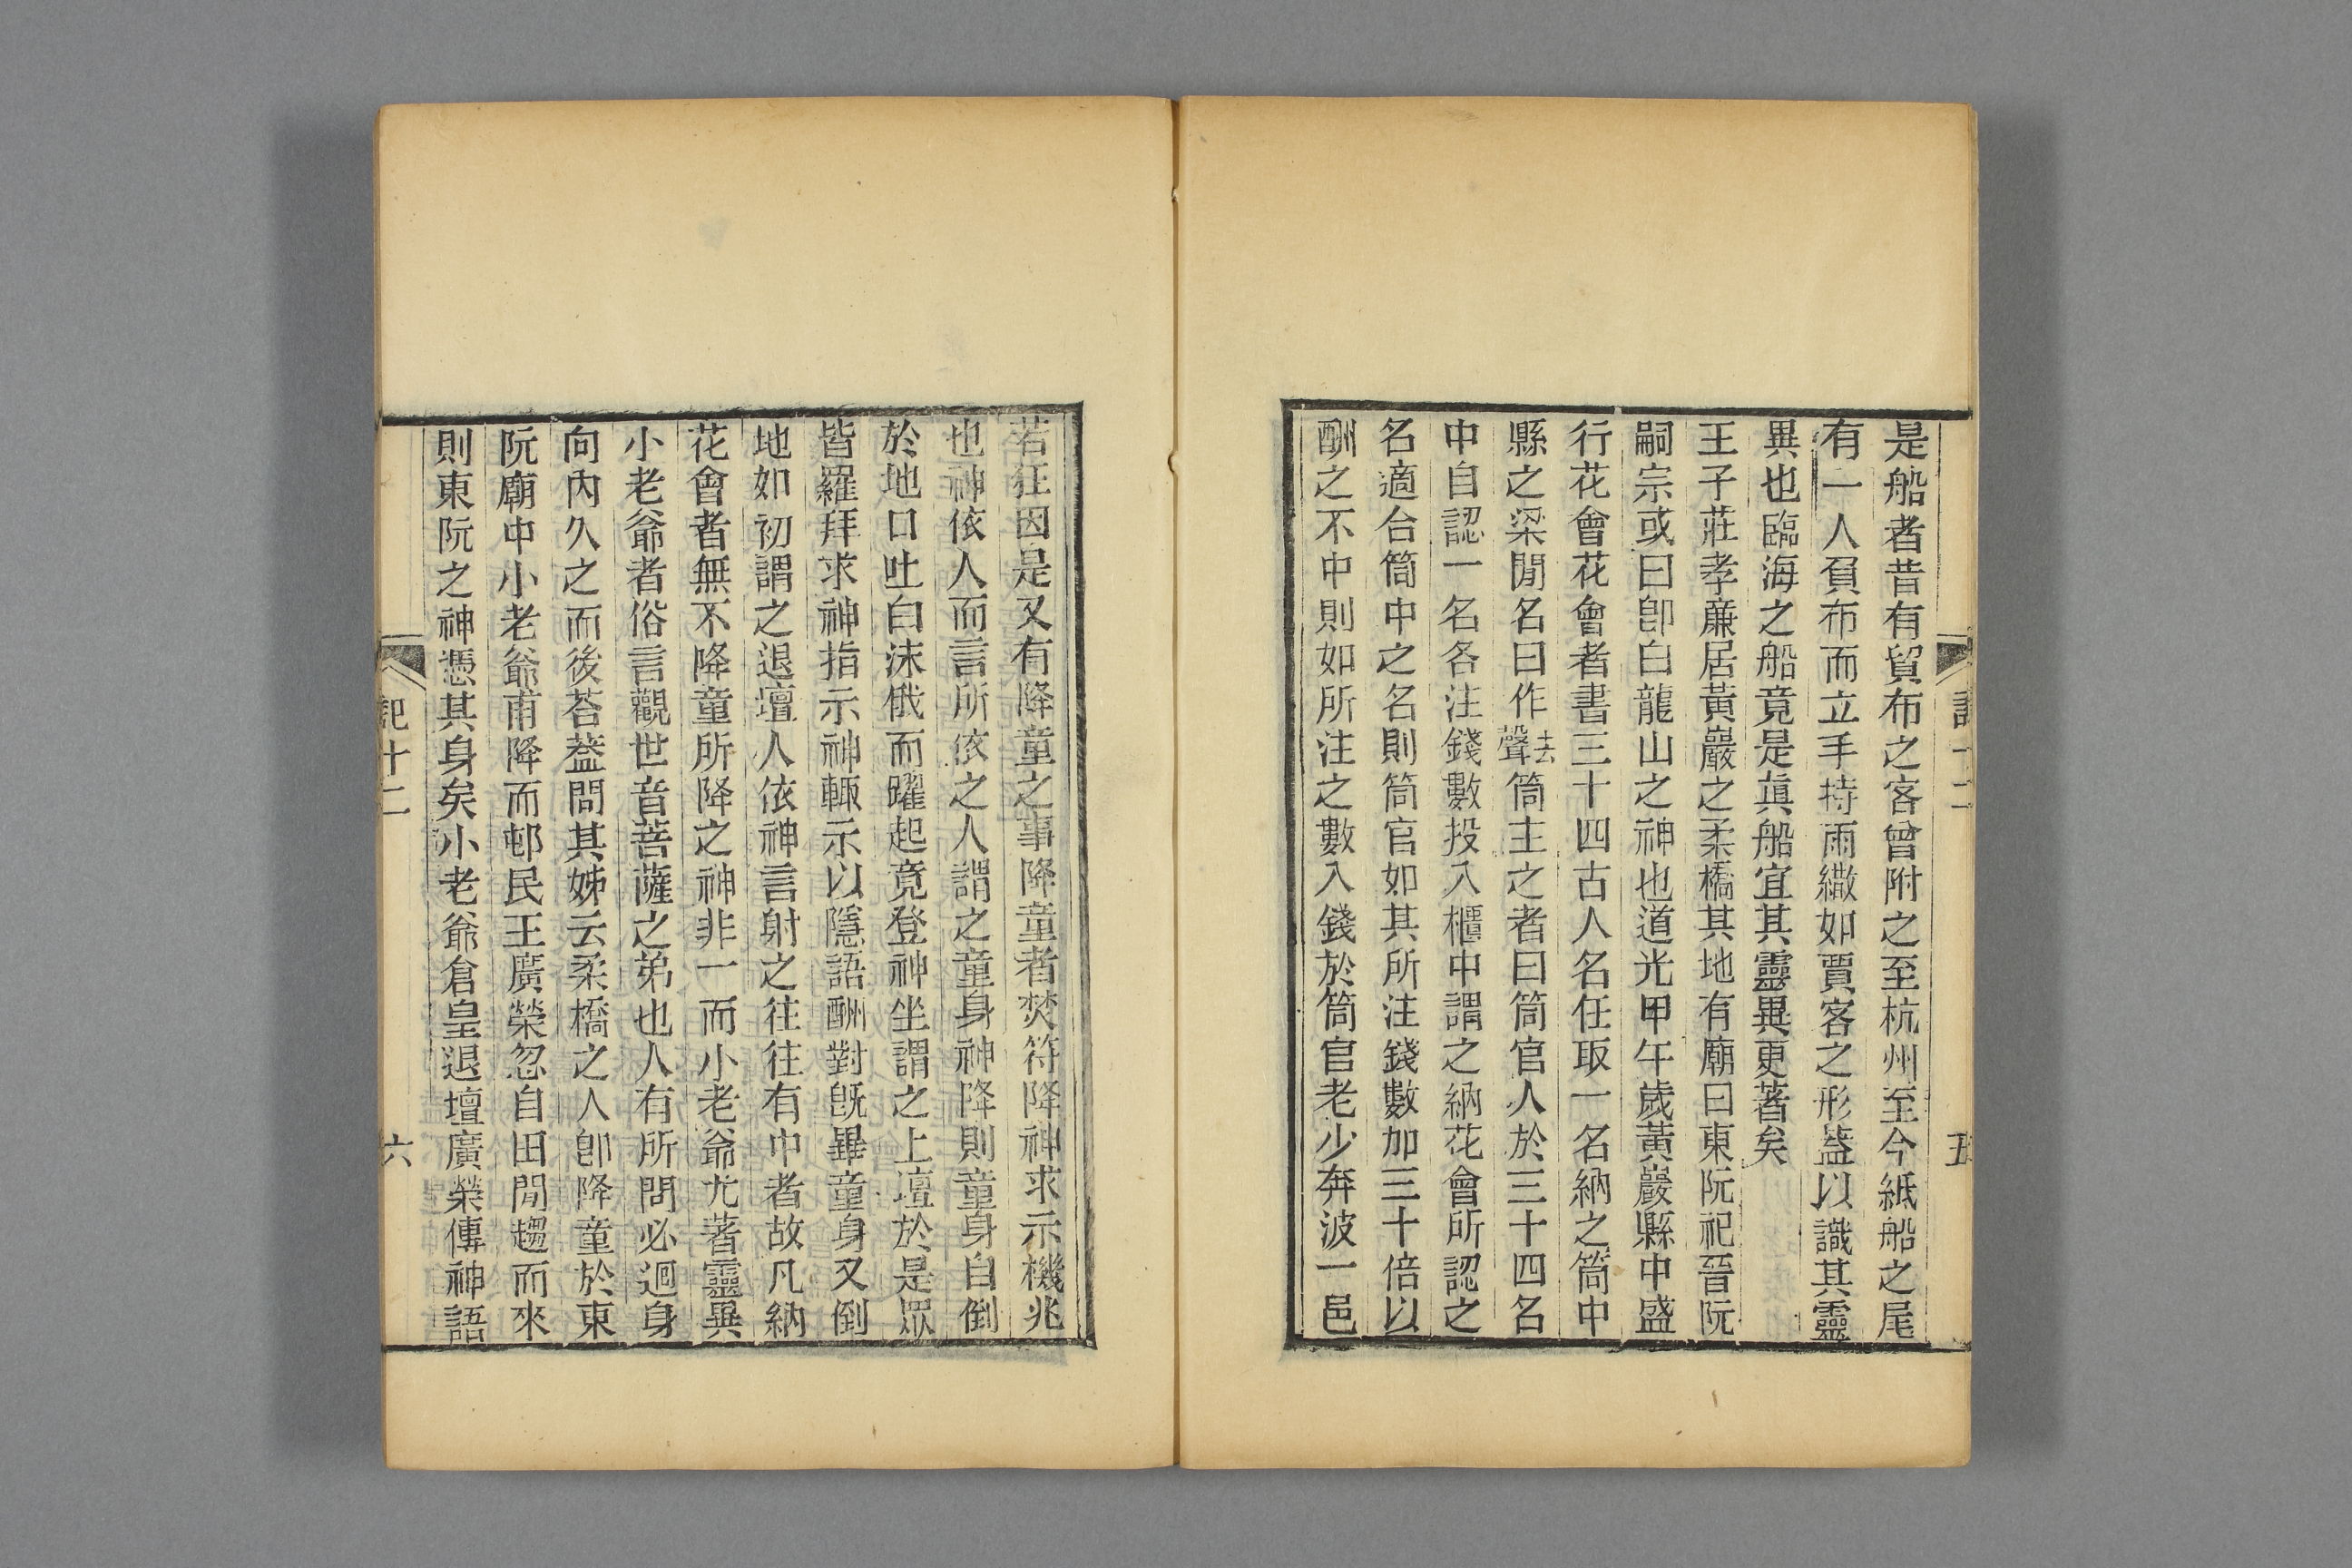 是船者昔有貿布之客曾附之至杭州至今紙船之尾
有一人負布而立手持雨繖如賈客之形葢以識其靈
異也臨海之船竟是真船宜其靈異更著矣
王子莊孝廉居黃巖之柔橋其地有廟曰東阮祀晉阮
嗣宗或曰卽白龍山之神也道光甲午歲黃巖縣中盛
行花會花會者書三十四古人名任取一名納之筒中
縣之梁閒名曰作去聲筒主之者曰筒官人於三十四名
中自認一名各注錢數投入櫃中謂之納花會所認之
名適合筒中之名則筒官如其所注錢數加三十倍以
酬之不中則如所注之數入錢於筒官老少奔波一邑
五
若狂因是又有降童之事降童者焚符降神求示機兆
也神依人而言所依之人謂之童身神降則童身自倒
於地口吐白沫俄而躍起竟登神坐謂之上壇於是眾
皆羅拜求神指示神輒示以隱語酬對旣畢童身又倒
地如初謂之退壇人依神言射之往往有中者故凡納
花會者無不降童所降之神非一而小老爺尤著靈異
小老爺者俗言觀世音菩薩之弟也人有所問必迴身
向內久之而後荅葢問其姊云柔橋之人卽降童於東
阮廟中小老爺甫降而邨民王廣榮忽自田閒趨而來
則東阮之神憑其身矣小老爺倉皇退壇廣榮傳神語
記十二
六